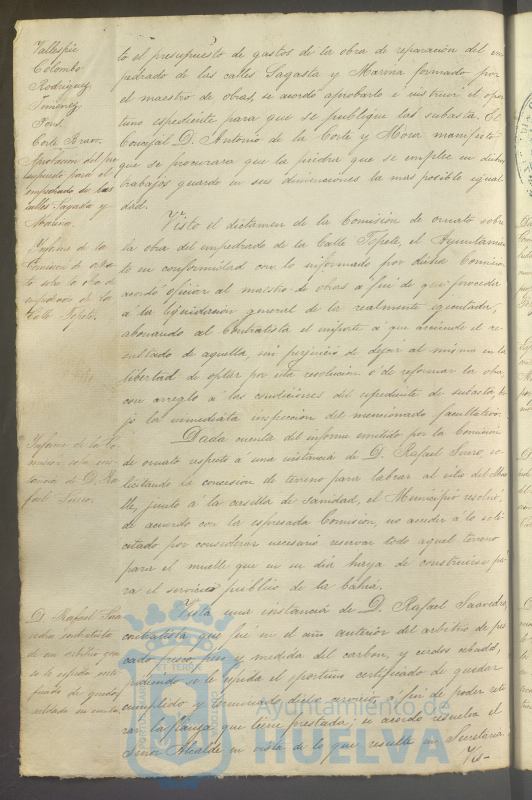 Vallespin
Colombo
Rodriguez
Jimenez
Pons
Corte Bravo.
Aprobacion del pre
supuesto para el
empedrado de las
calles Sagasta y
Marina.
Informe de la
Comision de orna
to sobre la obra de
empedrado de la
Calle Topete.
Informe de la Co
mision sobre ins
tancia de D. Ra
fael
D. Rafael Saa
vedra contratista
de un arbitrio que
se le espida certi
ficado de quedar
to el presupuesto de gastos de la obra de reparación del em
pedrado de las calles Sagasta y Marina formado por
el maestro de obras, se acordó aprobarlo é instruir el opor
tuno espediente para que se publique las subasta. El
Concejal D. Antonio de la Corte y Mora manifestó
que se procurara que la piedra que se emplee en dichos
trabajos guarde en sus dimensiones la mas posible igual
dad.
Visto el dictamen de la Comision de ornato sobre
la obra del empedrado de la Calle Topete, el Ayuntamien
to en conformidad con lo informado por dicha Comision
acordó oficiar al maestro de obras a fin de que proceda
á la liquidacion general de la realmente ejecutada,
abonando al Contratista el importe á que asciende el re
sultado de aquella, sin perjuicio de dejar al mismo en la
libertad de optar por esta resolucion ó de reformar la obra
con arreglo a las condiciones del espediente de subasta, ba
jo la inmediata inspeccion del mencionado facultativo.
Dada cuenta del informe emitido por la Comision
de ornato respecto á una instancia de D. Rafael so
licitando la concesion de terreno para labrar al sitio del Mue
lle, junto á la casilla de sanidad, el Municipio resolvió,
de acuerdo con la espresada Comision, no acceder á lo soli
citado por considerar necesario reservar todo aquel terreno
para el muelle que en su dia haya de construirse pa
ra el servicio publico de la bahia.
Vista una instancia de D. Rafael Saavedra,
contratista que fué en el año anterior del arbitrio de pes
cado fresco, peso y medida del carbon, y cerdos cebado,
pidiendo se le espida el oportuno certificado de quedar
cumplido y terminado dicho servicio á fin de poder reti
rar la fianza que tiene prestada; se acordó resuelva el
Señor Alcalde en vista de lo que resulte en Secretaria.
Vis-
Ayuntamiento de
HUELVA